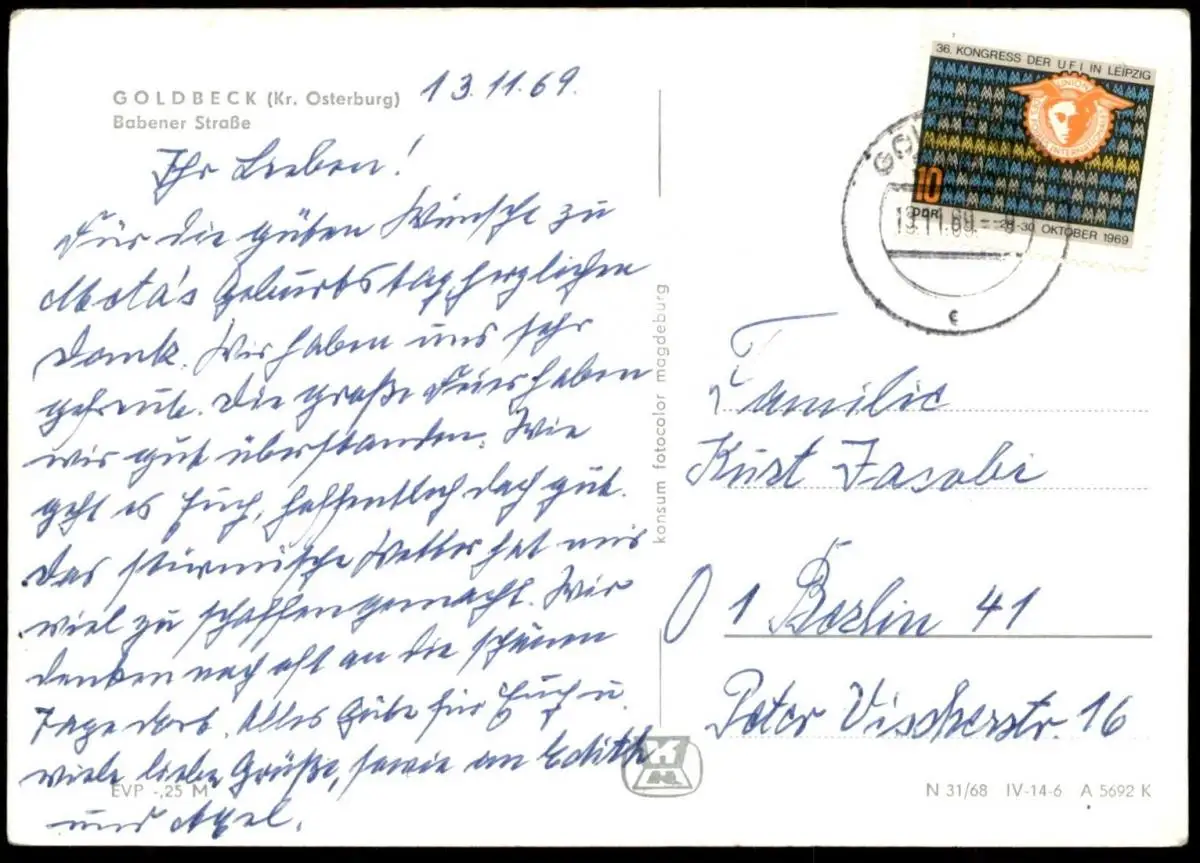 GOLDBECK (Kr. Osterburg)
Babener Straße
13.11.69.
Ihr Lieben!
Für die guten Wünsche zu
Geburtstag herzlichen
Dank. Wir haben uns sehr
gefreut. Die große Feier haben
wir gut überstanden. Wie
geht es Euch, hoffentlich doch gut.
Das stürmische Wetter hat uns
viel zu schaffen gemacht. Wir
denken noch oft an die schönen
Tage dort. Alles Gute für Euch u.
viele liebe Grüße, sowie an Edith
und Axel.
EVP -,25 M
konsum fotocolor magdeburg
36. KONGRESS DER UFI IN LEIPZIG
UNION
DES FOIRES INTERNATIONALES
10
DDR
28.-30. OKTOBER 1969
13.11.69.-
c
Familie
Kurt Jacobi
1 Berlin 41
Peter Vischerstr. 16
N 31/68 IV-14-6 A 5692 K